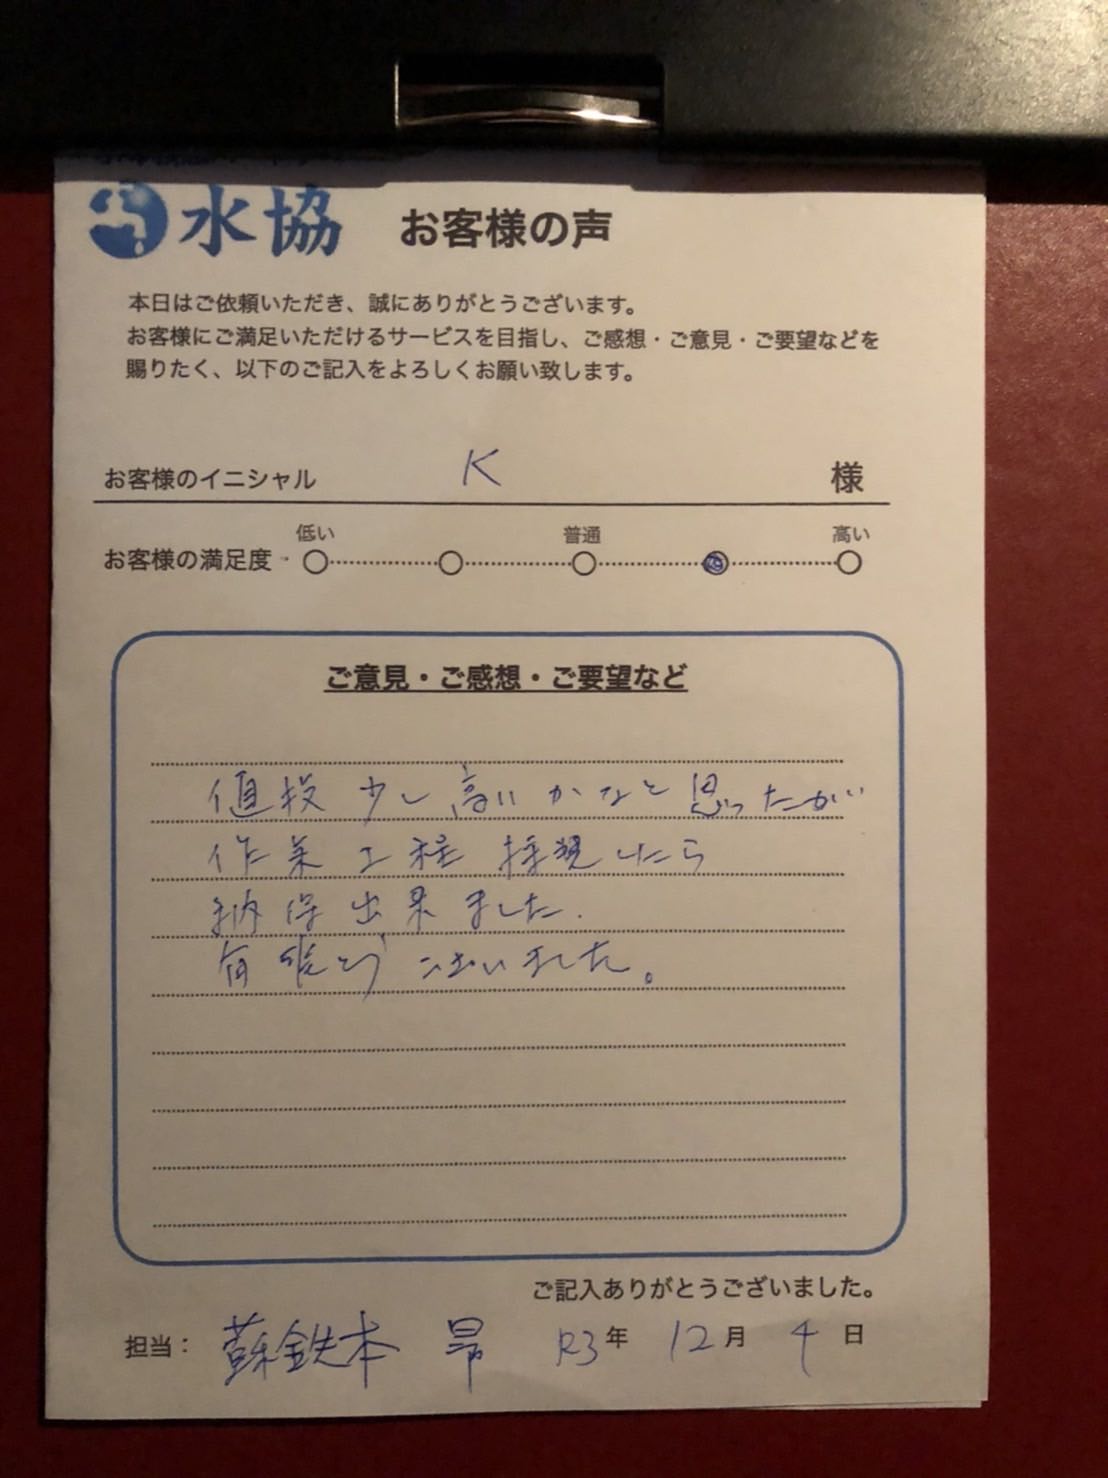 水協 お客様の声
本日はご依頼いただき、誠にありがとうございます。
お客様にご満足いただけるサービスを目指し、ご感想・ご意見・ご要望などを
賜りたく、以下のご記入をよろしくお願い致します。
お客様のイニシャル K 様
低い 普通 高い
お客様の満足度
ご意見・ご感想・ご要望など
値段 少し高いかなと思ったが
作業工程 拝見したら
納得出来ました.
有難とうございました。
ご記入ありがとうございました。
担当: 蘇鉄本 昴 R3年 12月 4日